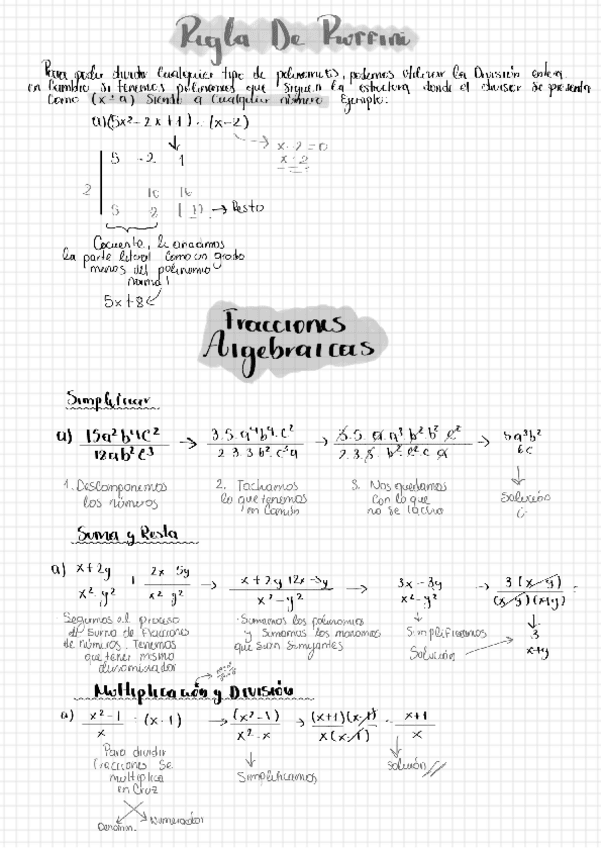 Regla De Ruffini
Para poder dividir cualquier tipo de polinomios, podemos utilizar la División entera
en cambio si tenemos polinomios que siguen la estructura donde el divisor se presenta
como (x ± a) siendo a cualquier número. Ejemplo:
a) (5x² - 2x + 1) : (x - 2)
x - 2 = 0
x = 2
5 -2 1
2
5
→ Resto
Cociente, le añadimos
la parte literal como un grado
menos del polinomio
normal
5x + 8
Fracciones
Algebraicas
Simplificar
a) 15a²b⁴c² / 12ab²c³ → 3·5·a⁴b⁴·c² / 2·3·3·b²·c³a → 3·5·a·a³·b²·b²·c² / 2·3·b²·c²·c·a → 5a³b² / 6c
1. Descomponemos
los números
2. Tachamos
lo que tenemos
en común
3. Nos quedamos
con lo que
no se tacha
Solución
Suma y Resta
a) x+2y / x² y² + 2x 5y / x² y² → x+2y+2x-5y / x²-y² → 3x-3y / x²-y² → 3(x-y) / (x-y)(x+y) =
Seguimos el proceso
de suma de fracciones
de números. Tenemos
que tener mismo
denominador
· Sumamos los polinomios
y sumamos los monomios
que sean semejantes
Simplificamos
Solución
3 / x+y
Multiplicación y División
a) x²-1 / x : (x-1) → (x²-1) / x²-x → (x+1)(x-1) / x(x-1) = x+1 / x
Para dividir
fracciones se
multiplica
en Cruz
Denomin. Numerador
Simplificamos
Solución